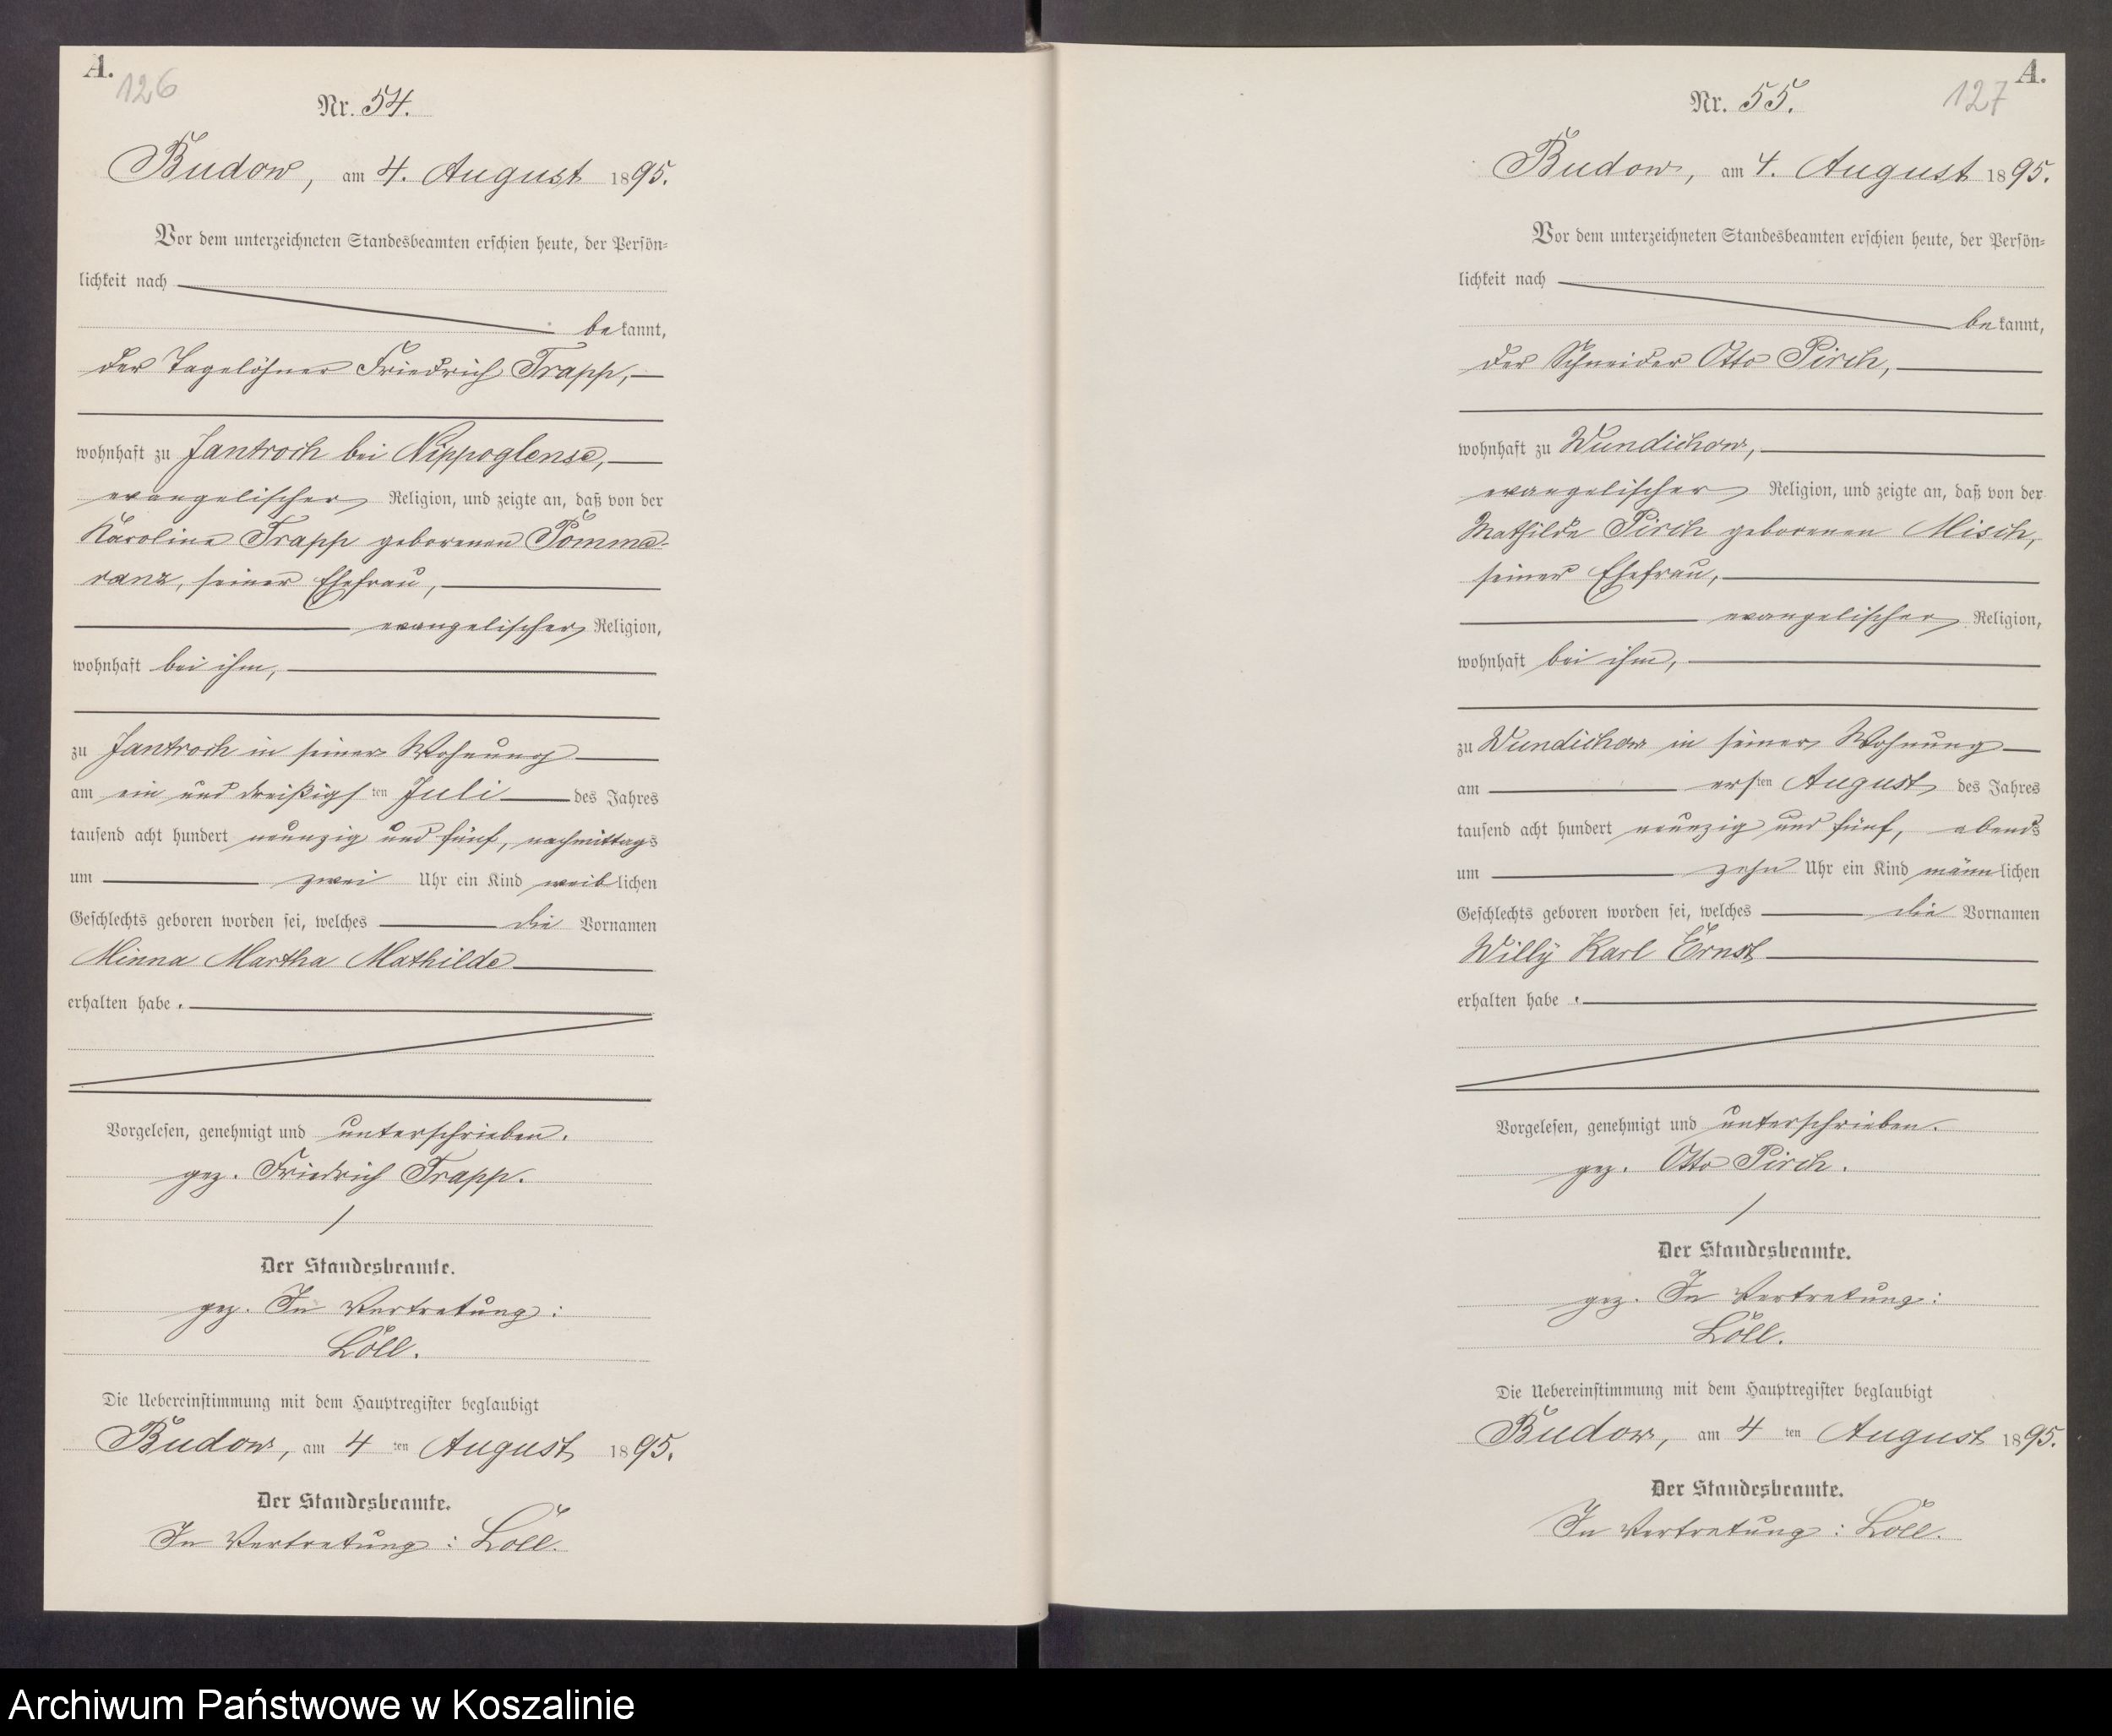 A.
126
Nr. 54.
Budow, am 4. August 1895.
Vor dem unterzeichneten Standesbeamten erschien heute, der Persön-
lichkeit nach
bekannt,
der Tagelöhner Friedrich Trapp,
wohnhaft zu Jantroch bei Nippoglense,
evangelischer Religion, und zeigte an, daß von der
Karoline Trapp geborenen Pomme-
ranz, seiner Ehefrau,
evangelischer Religion,
wohnhaft bei ihm,
zu Jantroch in seiner Wohnung
am ein und dreißigsten Juli des Jahres
tausend acht hundert neunzig und fünf, nachmittags
um zwei Uhr ein Kind weiblichen
Geschlechts geboren worden sei, welches die Vornamen
Minna Martha Mathilde
erhalten habe.
Vorgelesen, genehmigt und unterschrieben.
gez. Friedrich Trapp.
Der Standesbeamte.
gez. In Vertretung:
Löll.
Die Uebereinstimmung mit dem Hauptregister beglaubigt
Budow, am 4 ten August 1895.
Der Standesbeamte.
In Vertretung: Löll.
A.
127
Nr. 55.
Budow, am 4. August 1895.
Vor dem unterzeichneten Standesbeamten erschien heute, der Persön-
lichkeit nach
bekannt,
der Schneider Otto Pirch,
wohnhaft zu Wundichow,
evangelischer Religion, und zeigte an, daß von der
Mathilde Pirch geborenen Misch,
seiner Ehefrau,
evangelischer Religion,
wohnhaft bei ihm,
zu Wundichow in seiner Wohnung
am ersten August des Jahres
tausend acht hundert neunzig und fünf, abends
um zehn Uhr ein Kind männlichen
Geschlechts geboren worden sei, welches die Vornamen
Willy Karl Ernst
erhalten habe.
Vorgelesen, genehmigt und unterschrieben.
gez. Otto Pirch.
Der Standesbeamte.
gez. In Vertretung:
Löll.
Die Uebereinstimmung mit dem Hauptregister beglaubigt
Budow, am 4 ten August 1895.
Der Standesbeamte.
In Vertretung: Löll.
Archiwum Państwowe w Koszalinie